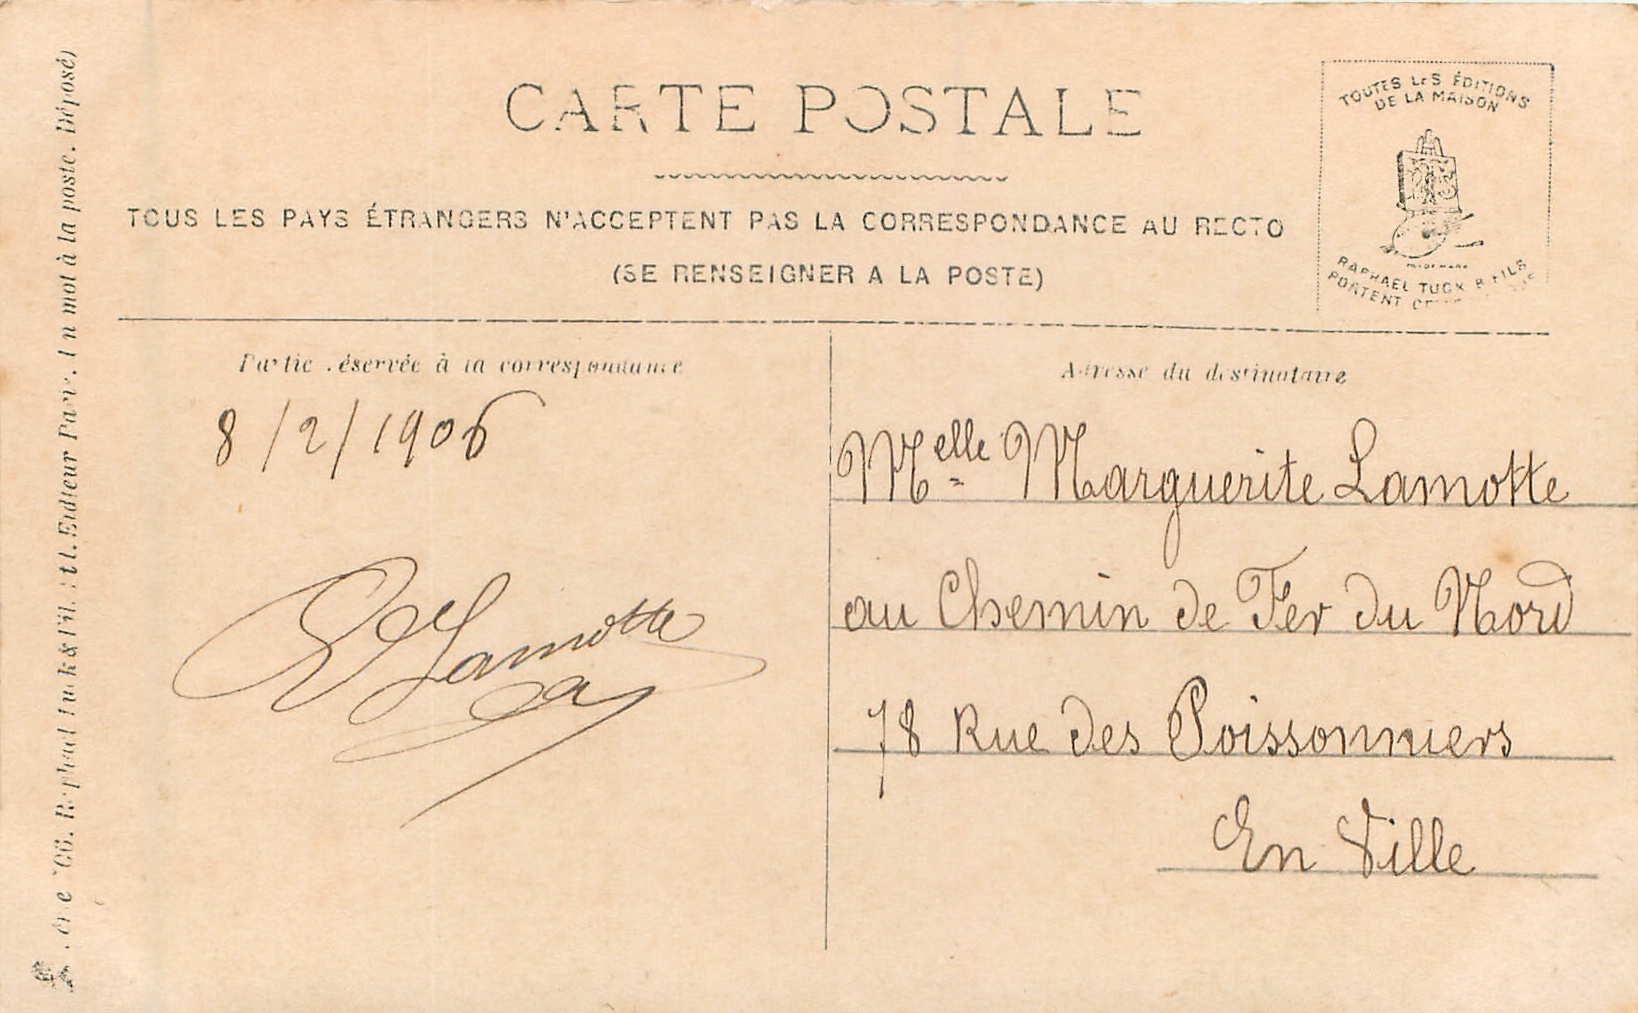 CARTE POSTALE
TOUS LES PAYS ÉTRANGERS N'ACCEPTENT PAS LA CORRESPONDANCE AU RECTO
(SE RENSEIGNER A LA POSTE)
TOUTES LES ÉDITIONS
DE LA MAISON
RAPHAEL TUCK & FILS
PORTENT
Partie réservée à la correspondance
Adresse du destinataire
8/2/1906
Lamotte
Melle Marguerite Lamotte
au Chemin de Fer du Nord
78 Rue des Poissonniers
En Ville
Raphael Tuck & Fils Ltd. Editeur Paris. Un mot à la poste. Déposé)